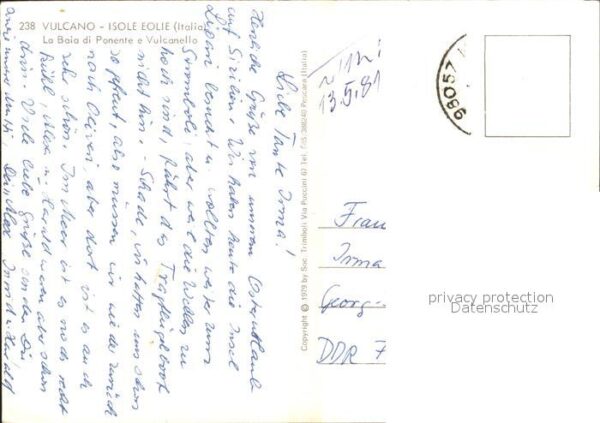 238 VULCANO - ISOLE EOLIE (Italia)
La Baia di Ponente e Vulcanello
13.5.81
Liebe Tante Irma!
Herzliche Grüße von unserem Osterurlaub
auf Sizilien. Wir haben heute die Insel
Lipari besucht u. wollten weiter zum
Stromboli, aber weil die Wellen zu
hoch sind, fährt das Tragflügelboot
nicht hin. - Schade, wir hatten uns schon
so gefreut, also müssen wir wieder zurück
nach Oliveri, aber dort ist es auch
sehr schön. Im Meer ist es noch recht
kühl, Max u. Harald waren aber schon
drin. Viele liebe Grüße senden Dir
Max
Copyright © 1979 by Soc. Trimboli Via Puccini 67 Tel. 388240 Pescara (Italia)
98057
Frau
Irma
Georg-
DDR 7
privacy protection
Datenschutz